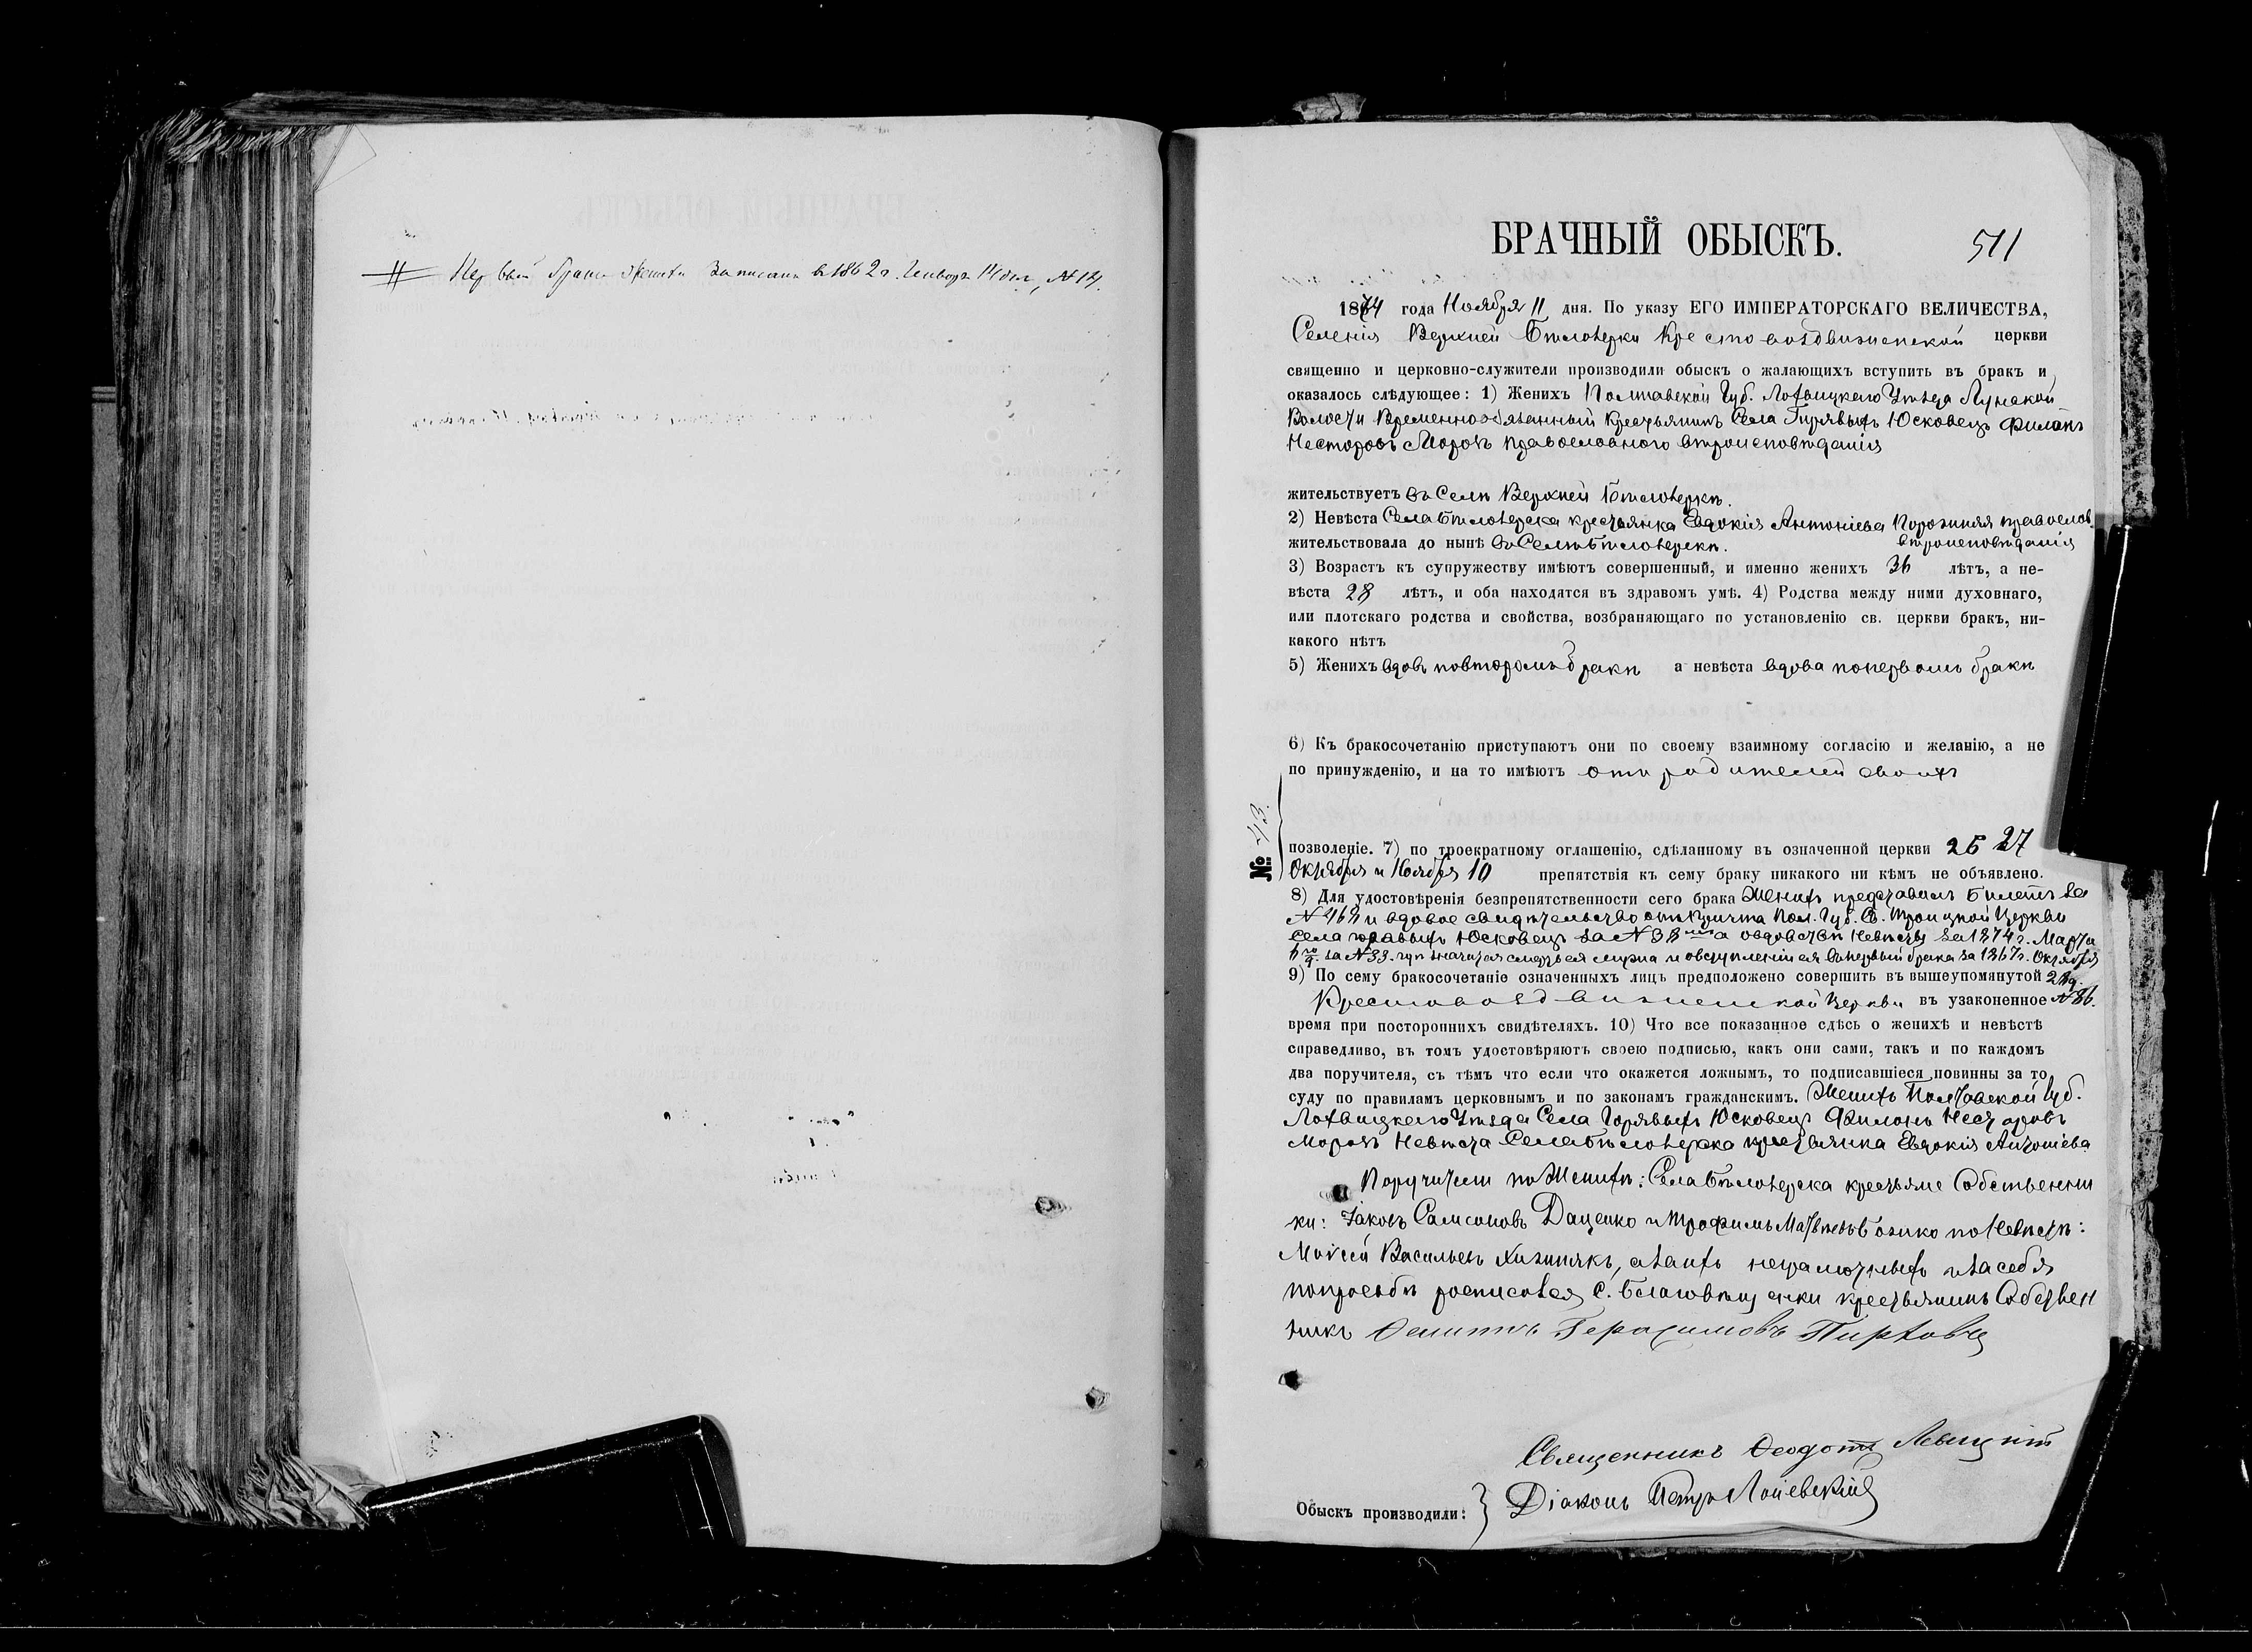 Первый бракъ жениха записанъ в 1862 г. Января 14 дня, № 14.
БРАЧНЫЙ ОБЫСКЪ.
511
1874 года Ноября 11 дня. По указу ЕГО ИМПЕРАТОРСКАГО ВЕЛИЧЕСТВА,
Селенія Верхней Бѣлозерки Крестовоздвиженской церкви
священно и церковно-служители производили обыскъ о жалающихъ вступить въ бракъ и
оказалось слѣдующее: 1) Женихъ Полтавской Губ. Лохвицкаго Уѣзда Луцекой
Волости Временнообязанный Крестьянинъ Села Гирявыхъ Юсковецъ Филонъ
Несторовъ Морозъ православного вѣроисповѣданія
жительствуетъ въ Селѣ Верхней Бѣлозеркѣ.
2) Невѣста Села Бѣлозерска крестьянка Евдокія Антоніева православ.
жительствовала до нынѣ въ Селѣ Бѣлозеркѣ. вѣроисповѣданія
3) Возрастъ къ супружеству имѣютъ совершенный, и именно женихъ 36 лѣтъ, а не-
вѣста 28 лѣтъ, и оба находятся въ здравомъ умѣ. 4) Родства между ними духовнаго,
или плотскаго родства и свойства, возбраняющаго по установленію св. церкви бракъ, ни-
какого нѣтъ
5) Женихъ вдовъ по второмъ бракѣ а невѣста вдова по первомъ бракѣ
6) Къ бракосочетанію приступаютъ они по своему взаимному согласію и желанію, а не
по принужденію, и на то имѣютъ отъ родителей своихъ
№ 43.
позволеніе. 7) по троекратному оглашенію, сдѣланному въ означенной церкви 26 27
Октября и Ноября 10 препятствія къ сему браку никакого ни кѣмъ не объявлено.
8) Для удостовѣренія безпрепятственности сего брака Женихъ представилъ Билетъ за
№ 468 и вдовое свидѣтельство отъ Причта Пол. Губ. Св. Троицкой Церкви
Села Юсковецъ за № 38 а о вдовствѣ Невѣсты за 1874 г. Марта
за № 33. значится смерть ея мужа и о вступленіи ея въ первый бракъ за 1867 г. Октября
9) По сему бракосочетаніе означенныхъ лицъ предположено совершить въ вышеупомянутой
Крестовоздвиженской Церкви въ узаконенное № 86.
время при постороннихъ свидѣтеляхъ. 10) Что все показанное сдѣсь о женихѣ и невѣстѣ
справедливо, въ томъ удостовѣряютъ своею подписью, какъ они сами, такъ и по каждомъ
два поручителя, съ тѣмъ что если что окажется ложнымъ, то подписавшіеся повинны за то
суду по правиламъ церковнымъ и по законамъ гражданскимъ. Женихъ Полтавской Губ.
Лохвицкаго Уѣзда Села Горявыхъ Юсковецъ Филонъ Несторовъ
Морозъ Невѣста Села Бѣлозерска крестьянка Евдокія Антоніева
Поручители по Женихѣ: Села Бѣлозерска крестьяне Собственни
ки: Іаковъ Самсоновъ Даценко и Трофимъ Матвѣевъ Божко по Невѣстѣ:
Моисей Васильевъ Хижнякъ, а за нихъ неграмотныхъ и за себя
по просьбѣ росписался С. Благовѣщенки крестьянинъ Собствен
никъ Герасимовъ
Священникъ Феодотъ Левицкій
Обыскъ производили: Діаконъ Петръ